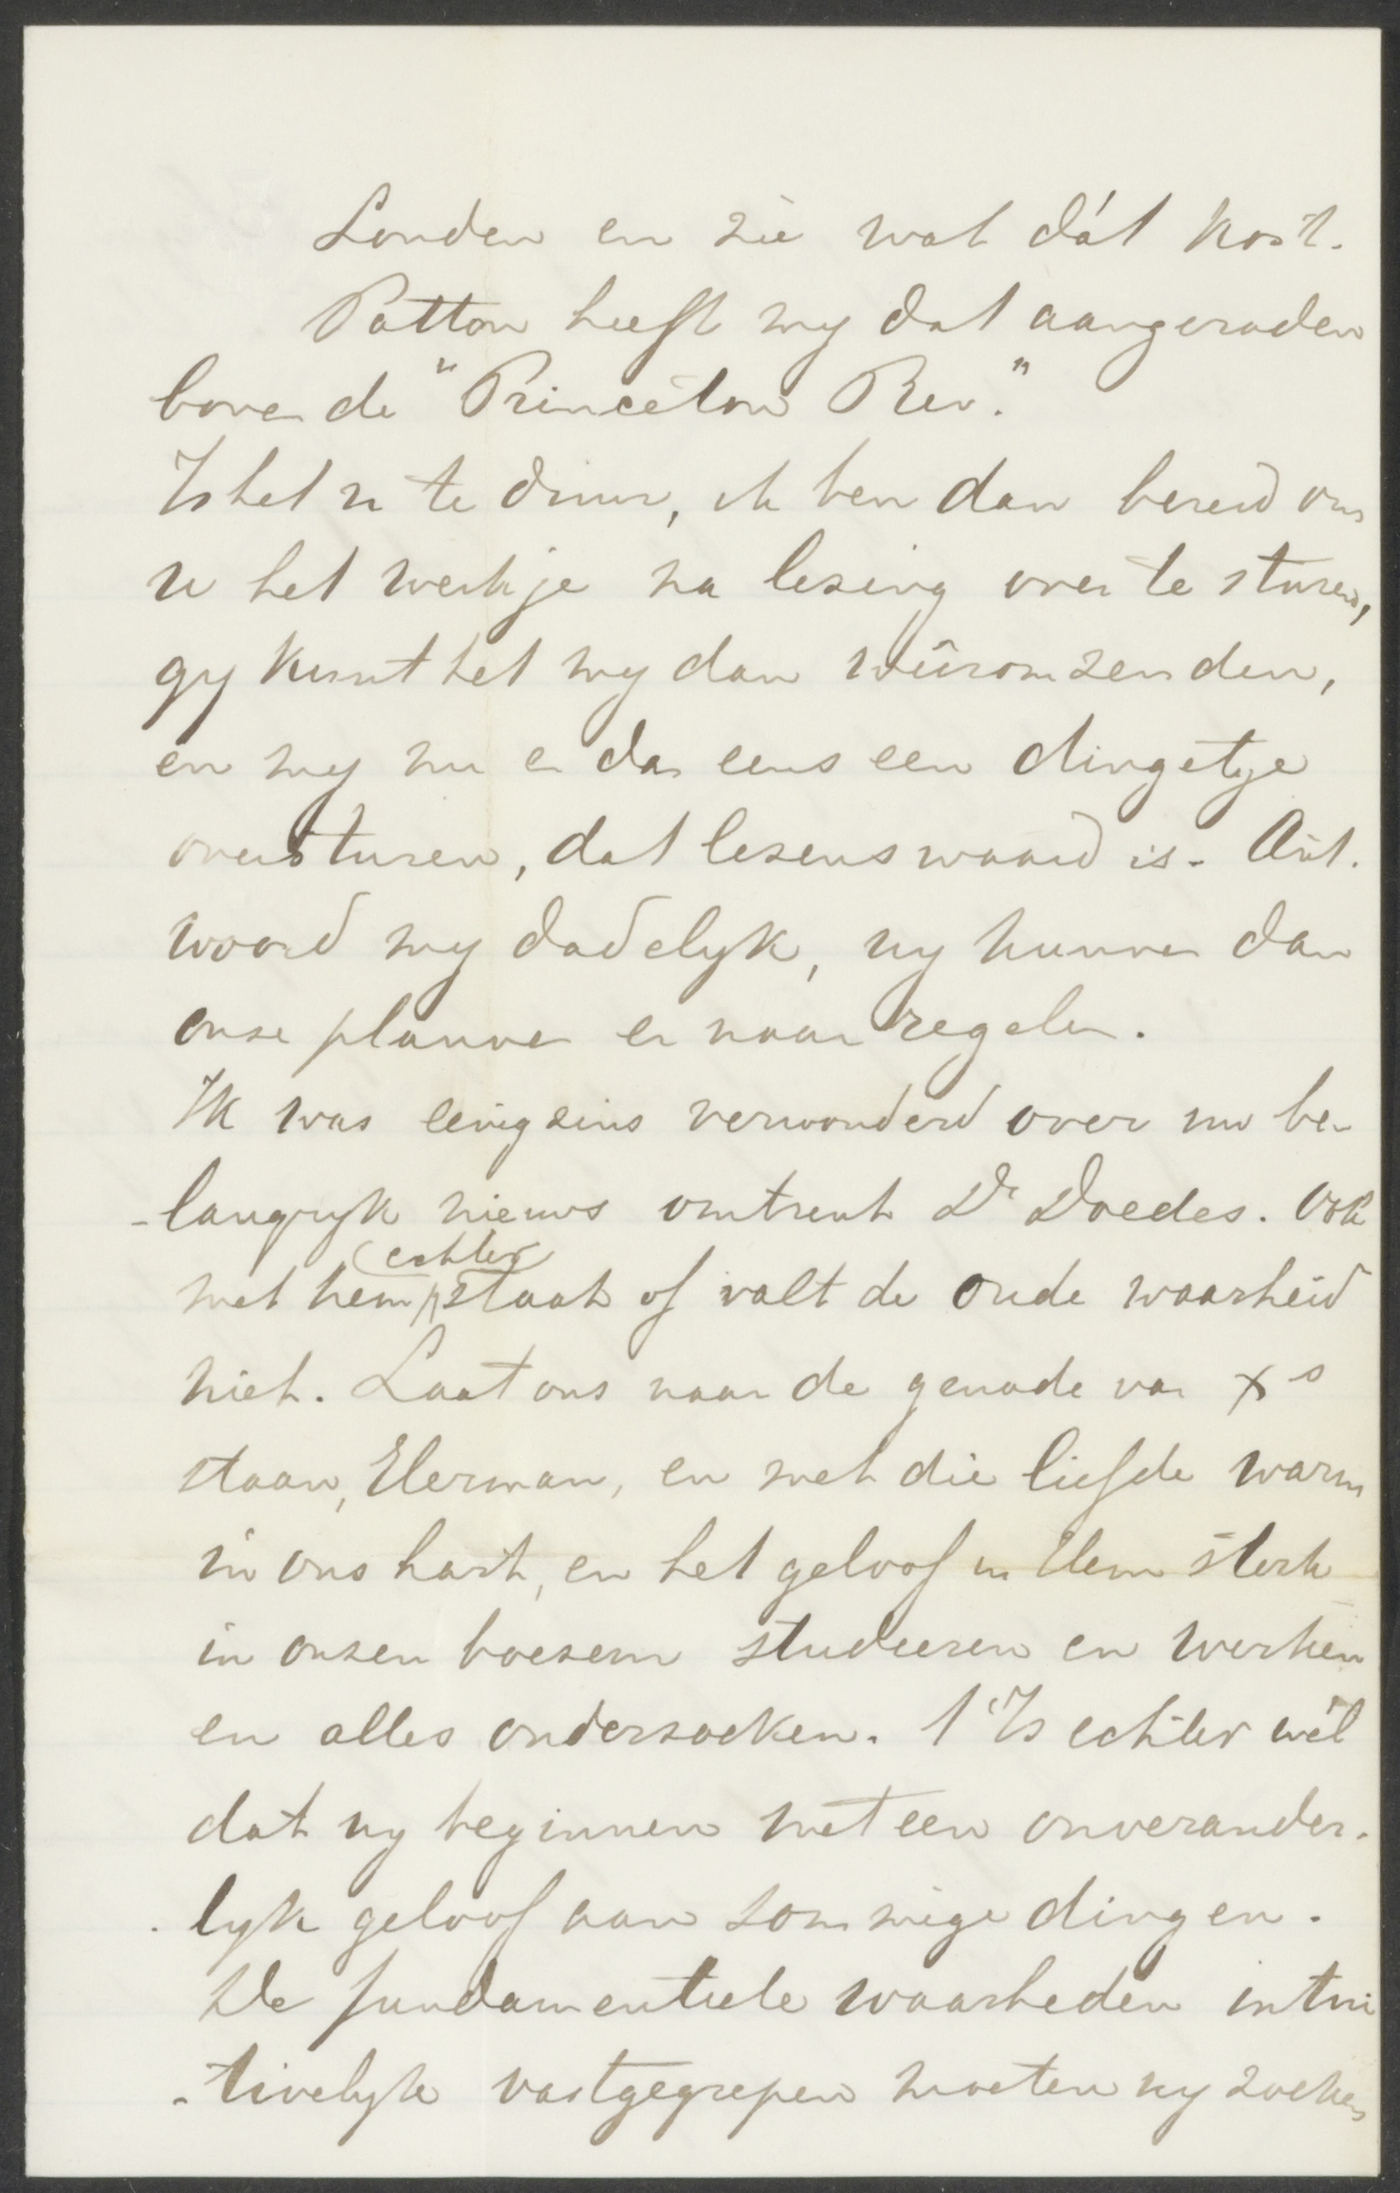 Londen en zie wat dát kost.
Patton heeft my dat aangeraden
boven de "Princeton Rev."
Is het u te duur, ik ben dan bereid om
u het werkje na lezing over te sturen,
gy kunt het my dan weêromzenden,
en my nu en dan eens een dingetje
oversturen, dat lezenswaard is. Ant.
woord my dadelyk, wy kunnen dan
onze plannen er naar regelen.
Ik was eenigzins verwonderd over uw be-
-langryk nieuws omtrent Dr Doedes. Ook
echter
met hem staat of valt de oude waarheid
niet. Laat ons naar de genade van Xs
staan, Herman, en met die liefde warm
in ons hart, en het geloof in Hem sterk
in onzen boezem studeeren en werken
en alles onderzoeken. 't Is echter wèl
dat wy beginnen met een onverander-
lyk geloof aan sommige dingen.
De fundamenteele waarheden intui
-tivelyk vastgegrepen moeten wy zoeken